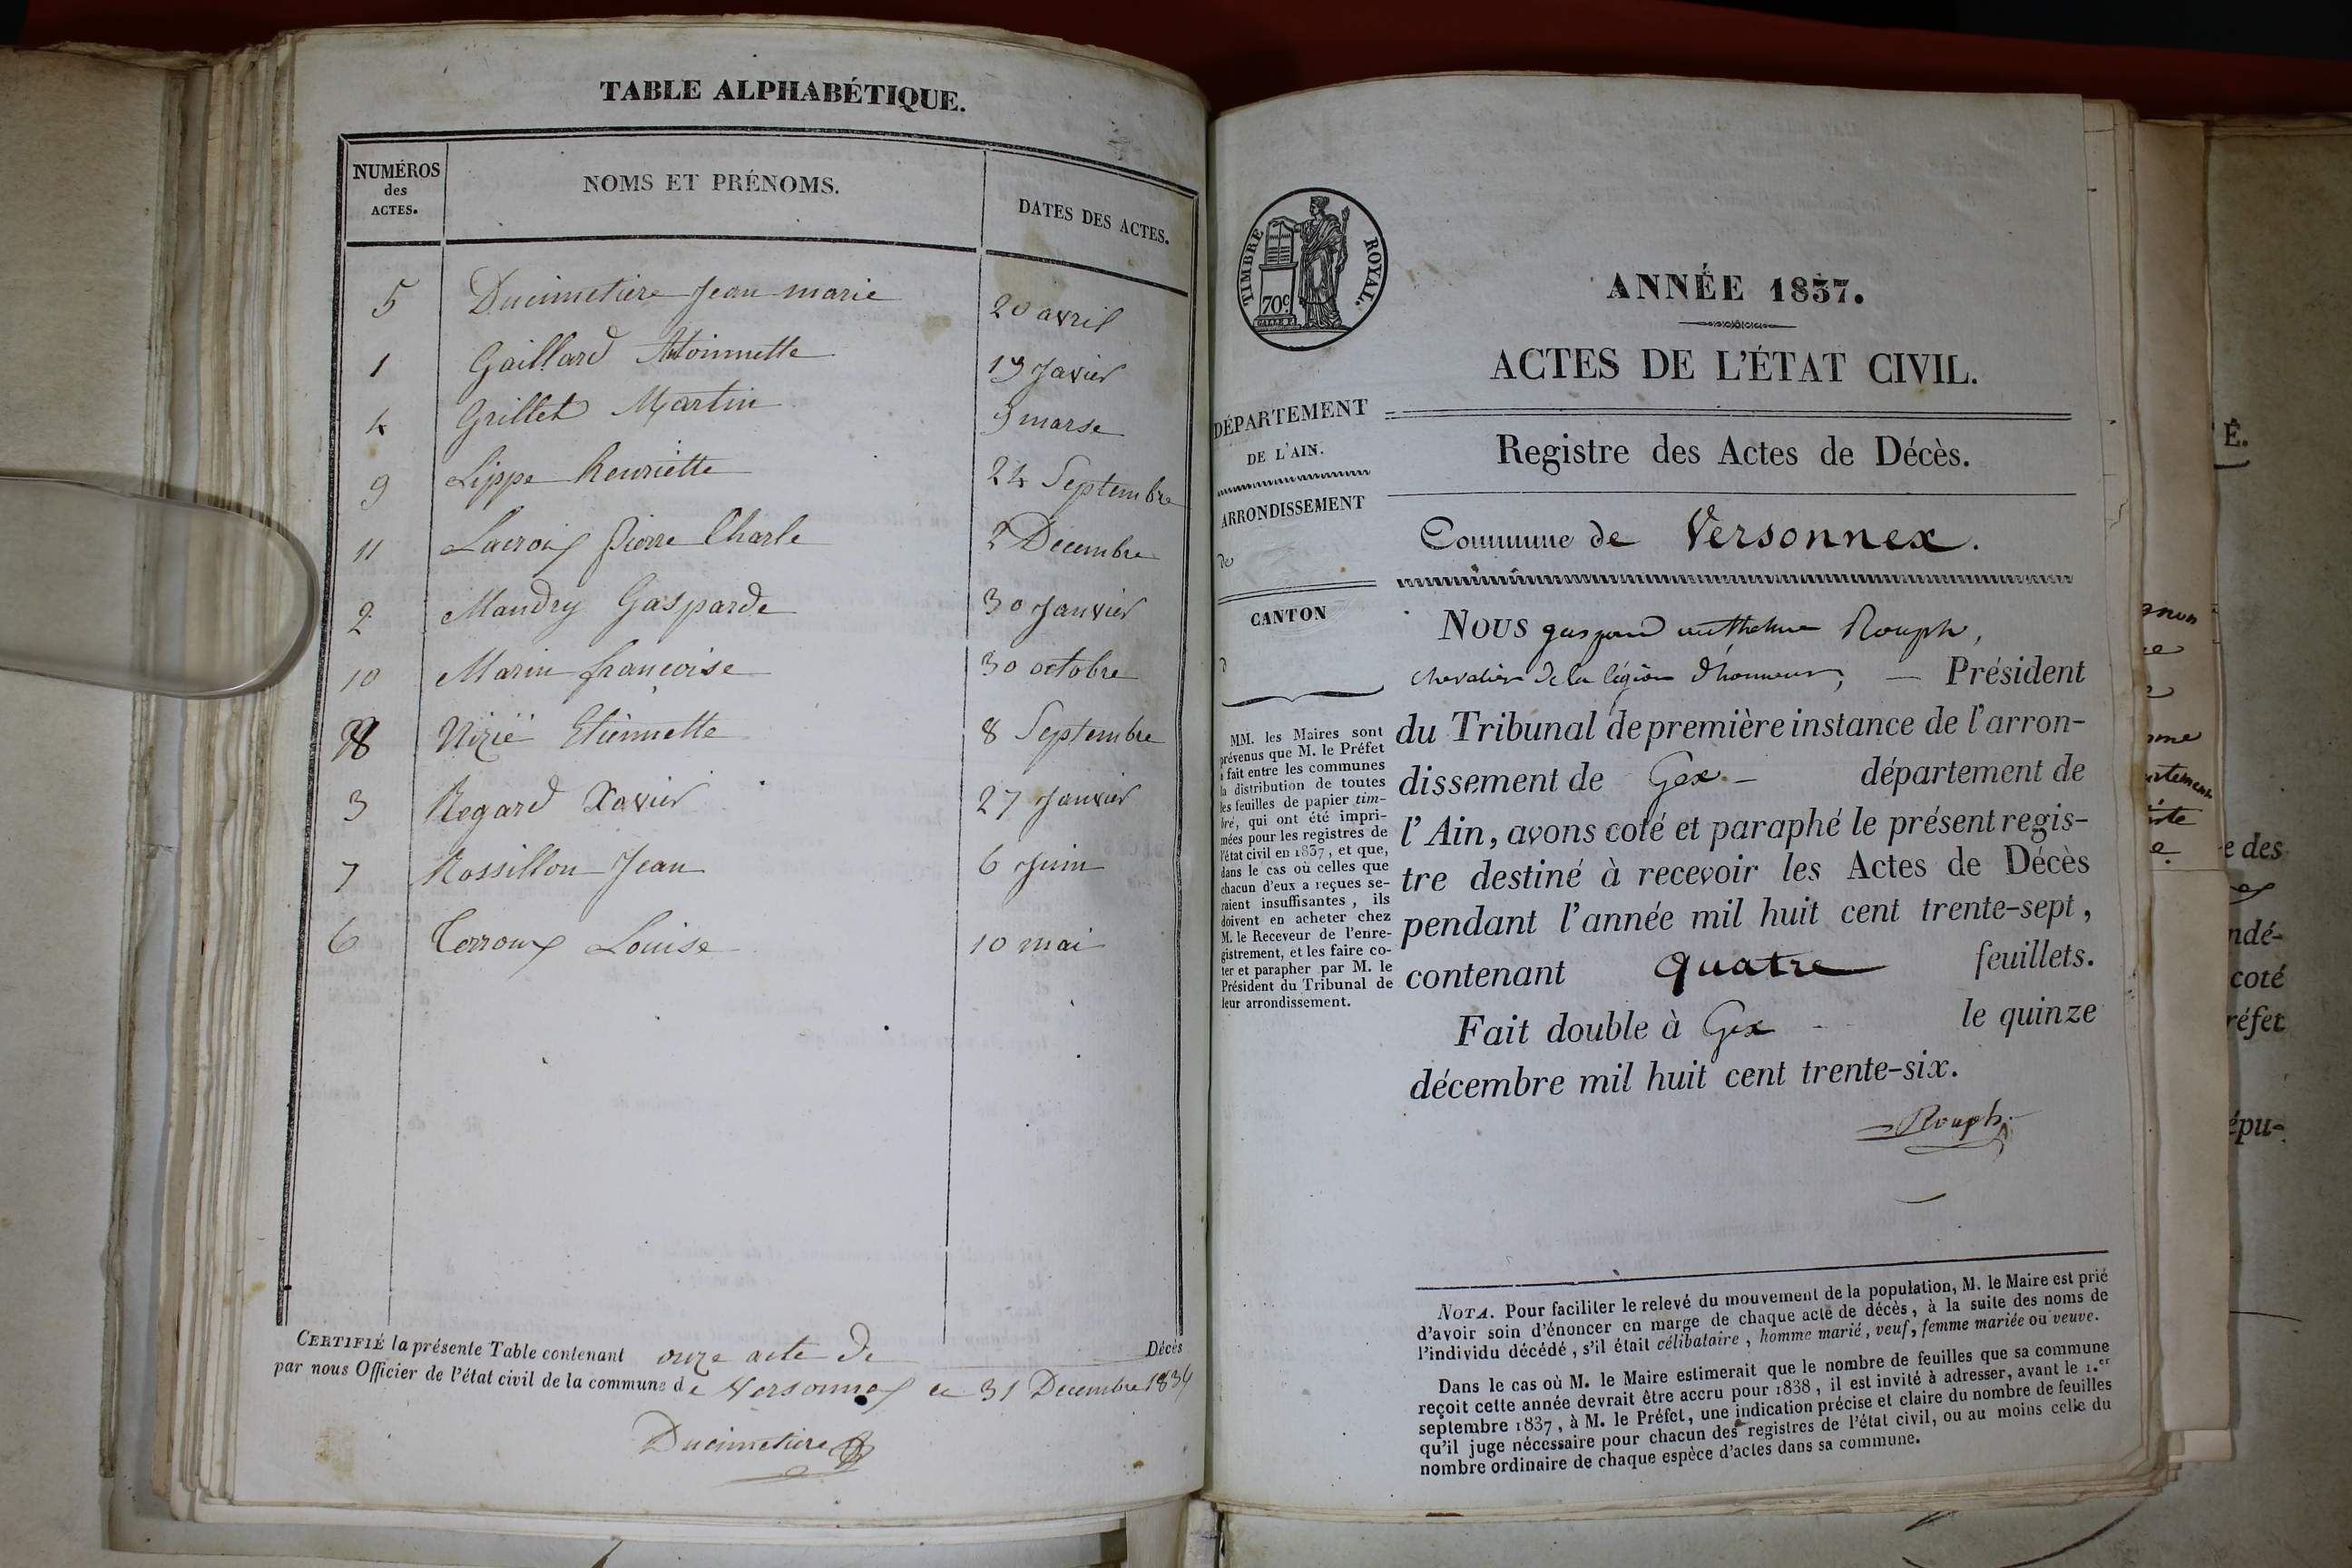 TABLE ALPHABÉTIQUE.
NUMÉROS des ACTES. NOMS ET PRÉNOMS. DATES DES ACTES.
5 Ducimetiere Jean marie 20 avril
1 Gaillard Antoinnette 19 Javier
4 Grillet Martin 9 marse
9 Lippe henriette 24 Septembre
11 Lacroix pierre Charle 2 Decembre
2 Mandry Gasparde 30 Janvier
10 Marin francoise 30 octobre
8 Niziè Etiennette 8 Septembre
3 Regard Xavier 27 Janvier
7 Rossillon Jean 6 Juin
6 Terroux Louise 10 mai
CERTIFIÉ la présente Table contenant onze acte de Décès
par nous Officier de l'état civil de la commune de Versonnex ce 31 Decembre
Ducimetiere
TIMBRE ROYAL.
70c.
ANNÉE 1837.
ACTES DE L'ÉTAT CIVIL.
DÉPARTEMENT
DE L'AIN.
ARRONDISSEMENT
de
CANTON
d
MM. les Maires sont
prévenus que M. le Préfet
a fait entre les communes
la distribution de toutes
les feuilles de papier tim-
bré, qui ont été impri-
mées pour les registres de
l'état civil en 1837, et que,
dans le cas où celles que
chacun d'eux a reçues se-
raient insuffisantes, ils
doivent en acheter chez
M. le Receveur de l'enre-
gistrement, et les faire co-
ter et parapher par M. le
Président du Tribunal de
leur arrondissement.
Registre des Actes de Décès.
Commune de Versonnex.
NOUS gaspard anthelme Rouph,
chevalier de la légion d'honneur, — Président
du Tribunal de première instance de l'arron-
dissement de Gex — département de
l'Ain, avons coté et paraphé le présent regis-
tre destiné à recevoir les Actes de Décès
pendant l'année mil huit cent trente-sept,
contenant quatre feuillets.
Fait double à Gex le quinze
décembre mil huit cent trente-six.
Rouph
NOTA. Pour faciliter le relevé du mouvement de la population, M. le Maire est prié
d'avoir soin d'énoncer en marge de chaque acte de décès, à la suite des noms de
l'individu décédé, s'il était célibataire, homme marié, veuf, femme mariée ou veuve.
Dans le cas où M. le Maire estimerait que le nombre de feuilles que sa commune
reçoit cette année devrait être accru pour 1838, il est invité à adresser, avant le 1.er
septembre 1837, à M. le Préfet, une indication précise et claire du nombre de feuilles
qu'il juge nécessaire pour chacun des registres de l'état civil, ou au moins celle du
nombre ordinaire de chaque espèce d'actes dans sa commune.
É.
e des
ndé-
coté
réfet
épu-